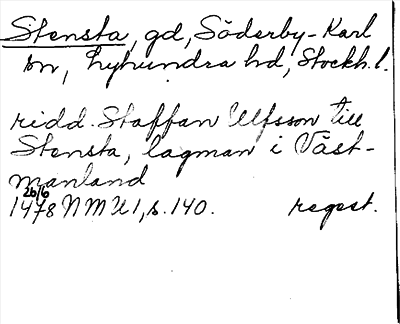 Stensta, gd, Söderby-Karl
sn, Lyhundra hd, Stockh. l.
ridd. Staffan Ulfsson till
Stensta, lagman i Väst-
manland
26/6
1478 NMU 1, s. 140. regest.